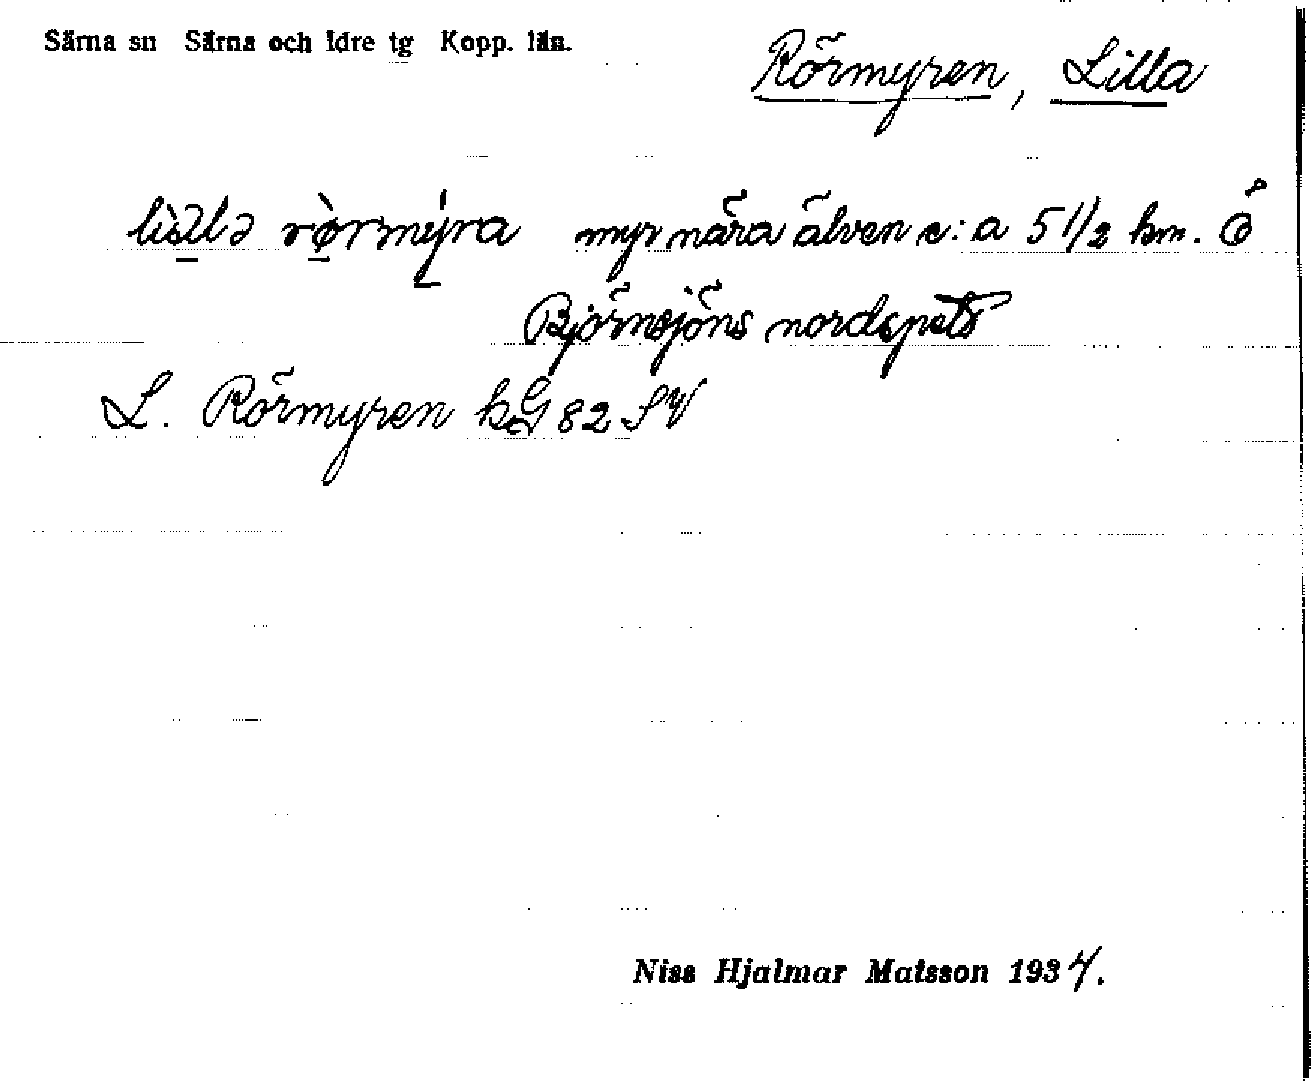 Särna sn Särna och Idre tg Kopp. län.
Rörmyren, Lilla
rø̀rmýra myr nära älven c:a 5 1/2 km. Ö
Björnsjöns nordspets
L. Rörmyren kG 82 SV
Niss Hjalmar Matsson 1934.